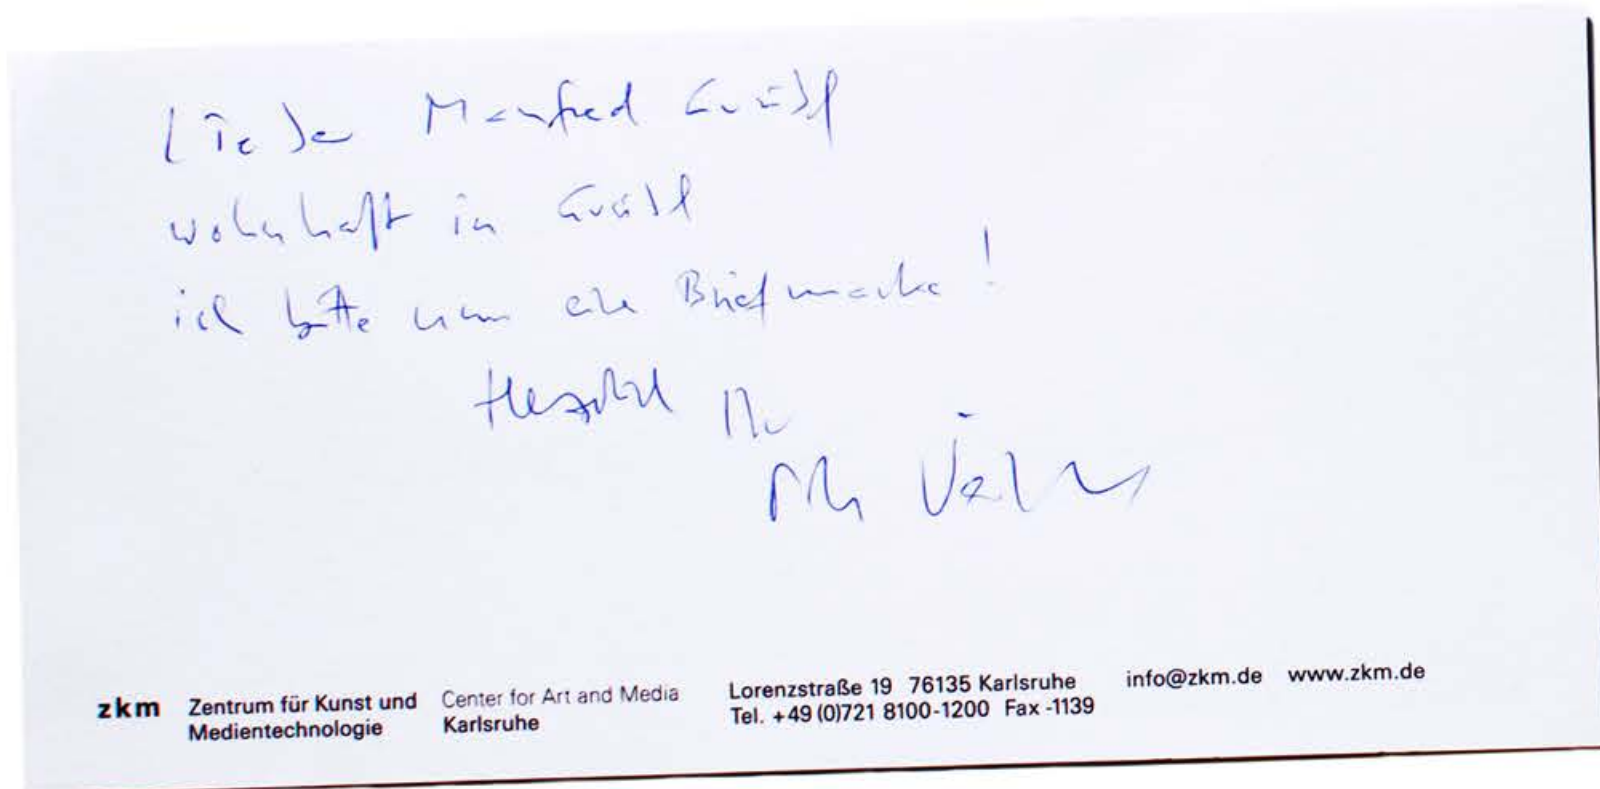 Lieber Manfred Grübl
wohnhaft in Grübl
ich bitte um eine Briefmarke!
Herzlich Ihr
zkm Zentrum für Kunst und Medientechnologie
Center for Art and Media Karlsruhe
Lorenzstraße 19 76135 Karlsruhe
Tel. +49 (0)721 8100-1200 Fax -1139
info@zkm.de www.zkm.de